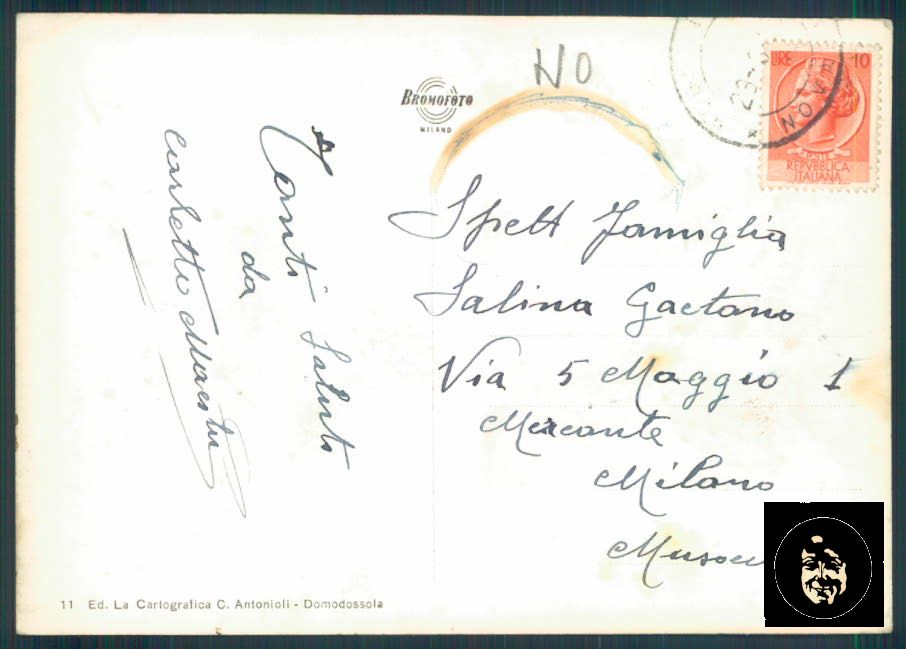 NO
BROMOFOTO
MILANO
LIRE 10
REPVBBLICA
ITALIANA
Tanti Saluti
da
Carletto
Spett Famiglia
Salina Gaetano
Via 5 Maggio 1
Mercante
Milano
11 Ed. La Cartografica C. Antonioli - Domodossola